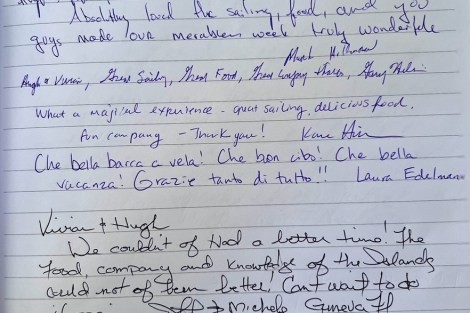 Absolutley loved the sailing, food, and you
guys made our week truly wonderful
Hugh & Vivian, Great Sailing, Great Food, Great
What a majical experience - great sailing, delicious food,
Fun company - Thank you!
Che bella barca a vela! Che bon cibo! Che bella
vacanza! Grazie tanto di tutto!! Laura Edelman
Vivian & Hugh
We couldn't of Had a better time! The
Food, company and knowledge of the Islands
could not of been better! Can't want to do
Jeff & Michele Geneva Il